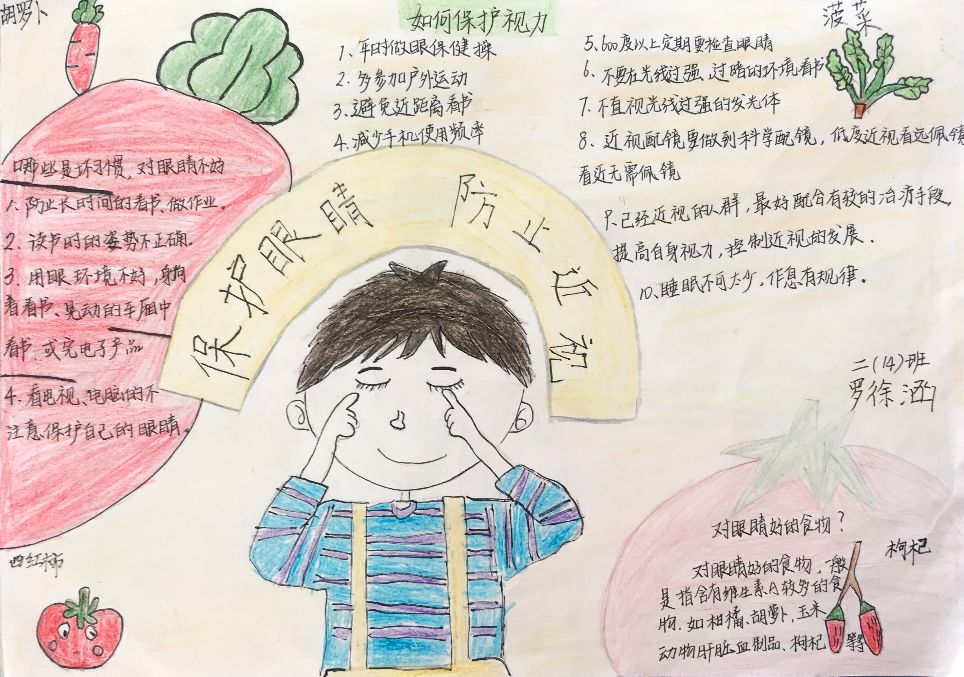 胡萝卜
如何保护视力
菠菜
1、平时做眼保健操
2、多参加户外运动
3、避免近距离看书
4、减少手机使用频率
5.600度以上定期要检查眼睛
6、不要在光线过强、过暗的环境看书
7、不直视光线过强的发光体
8、近视配镜要做到科学配镜，低度近视看远佩镜
看近无需佩镜
9.已经近视的人群，最好配合有效的治疗手段，
提高自身视力，控制近视的发展.
10、睡眠不可太少，作息有规律。
哪些是坏习惯，对眼睛不好
1、防止长时间的看书、做作业。
2、读书时的姿势不正确。
3、用眼环境不好，躺
着看书、晃动的车厢中
看书，或完电子产品
4、看电视、电脑的不
注意保护自己的眼睛。
保护眼睛 防止近视
二(14)班
罗徐涵
西红柿
对眼睛好的食物？
枸杞
对眼睛好的食物，一般
是指含有维生素A较多的食
物，如柑橘、胡萝卜，玉米
动物肝脏血制品、枸杞等